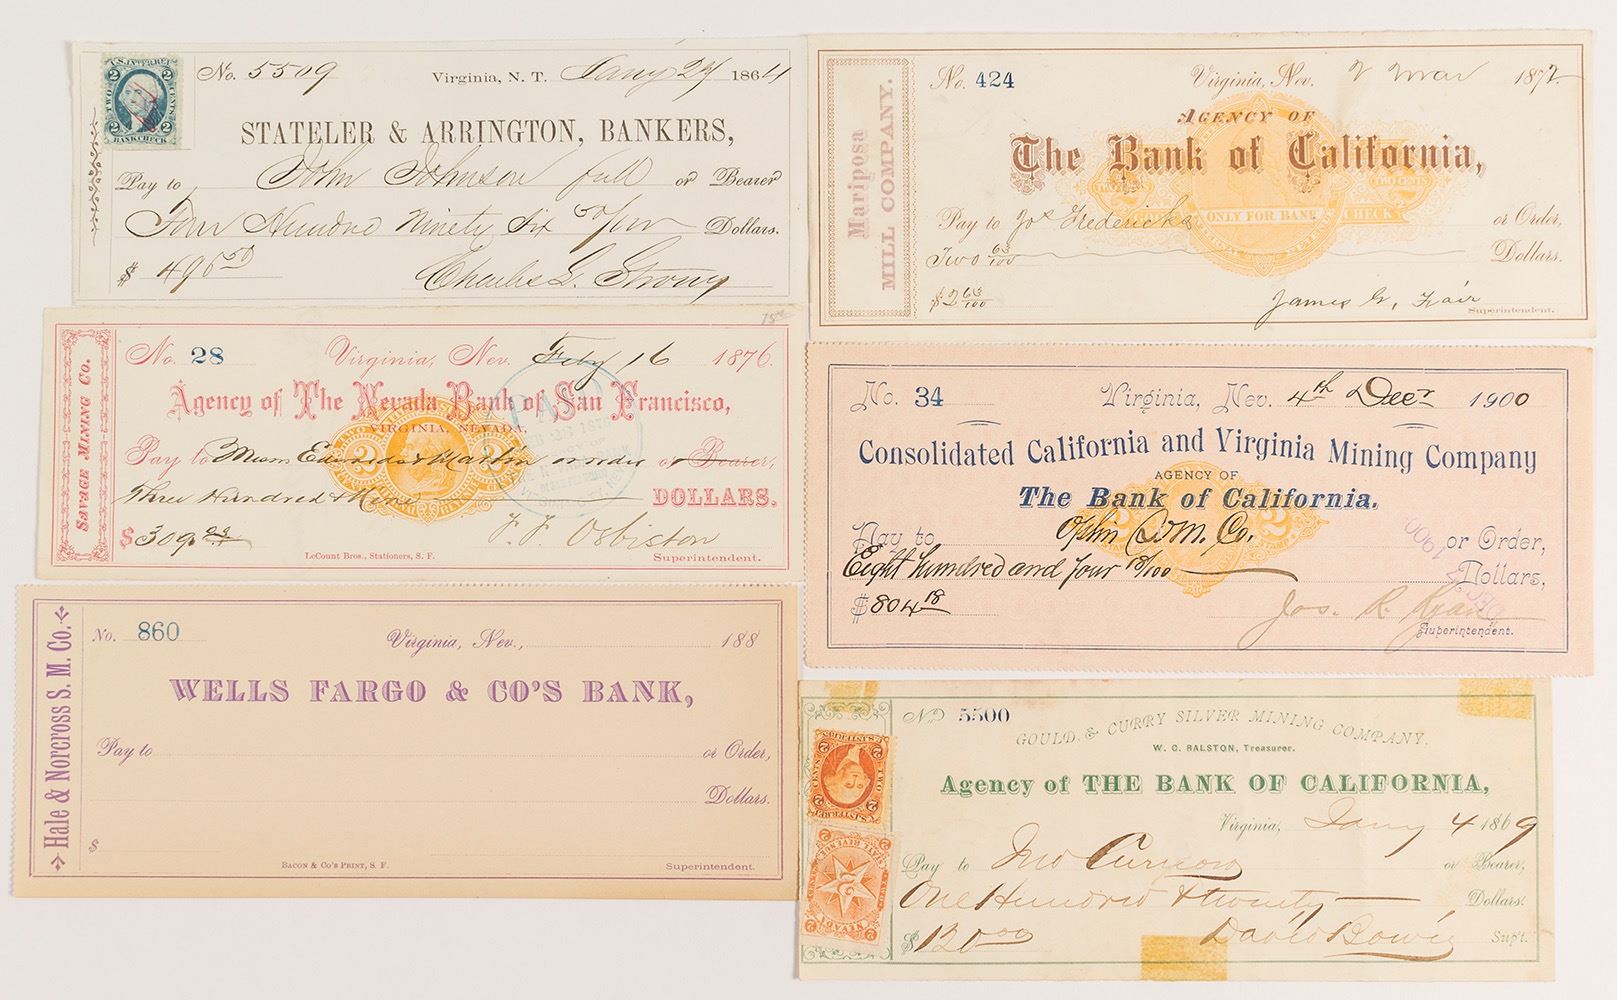 U.S. INTER. REV.
2 2
TWO CENTS
2 2
BANK CHECK
No. 5509 Virginia, N. T. Jany 29 1864
STATELER & ARRINGTON, BANKERS,
Pay to John Johnson full or Bearer
Four Hundred Ninety Six 50/100 Dollars.
$ 496 50 Charles L. Strong
Mariposa
MILL COMPANY.
No. 424 Virginia, Nev. 2 Mar 1872
AGENCY OF
The Bank of California,
TWO CENTS
ONLY FOR BANK CHECK
Pay to Jos Fredericks or Order,
Two 63/100 Dollars.
$2 63/100 James G. Fair
Superintendent.
15
SAVAGE MINING CO.
No. 28 Virginia, Nev. Feby 16 1876.
Agency of The Nevada Bank of San Francisco,
VIRGINIA, NEVADA.
PAID
Pay to or order or Bearer,
Three Hundred & Nine DOLLARS.
$309 F. F. Osbiston
LeCount Bros., Stationers, S. F. Superintendent.
No. 34 Virginia, Nev. 4th Decr 1900
Consolidated California and Virginia Mining Company
AGENCY OF
The Bank of California.
Pay to Ophir Co. or Order,
Eight hundred and four 18/100 Dollars,
$ 804 18 Jos. R. Ryan
Superintendent.
DEC 1900
Hale & Norcross S. M. Co.
No. 860 Virginia, Nev., 188
WELLS FARGO & CO'S BANK,
Pay to or Order,
Dollars.
$
BACON & CO'S PRINT, S. F. Superintendent.
No 5500 GOULD & CURRY SILVER MINING COMPANY,
W. C. RALSTON, Treasurer.
Agency of THE BANK OF CALIFORNIA,
Virginia, Jany 4 1869
Pay to Jno Curnow or Bearer,
One Hundred & twenty Dollars.
$120 00 David Bowie Supt.
U.S. INTER. REV.
TWO CENTS
2 2
STATE REVENUE
2 2
NEVADA